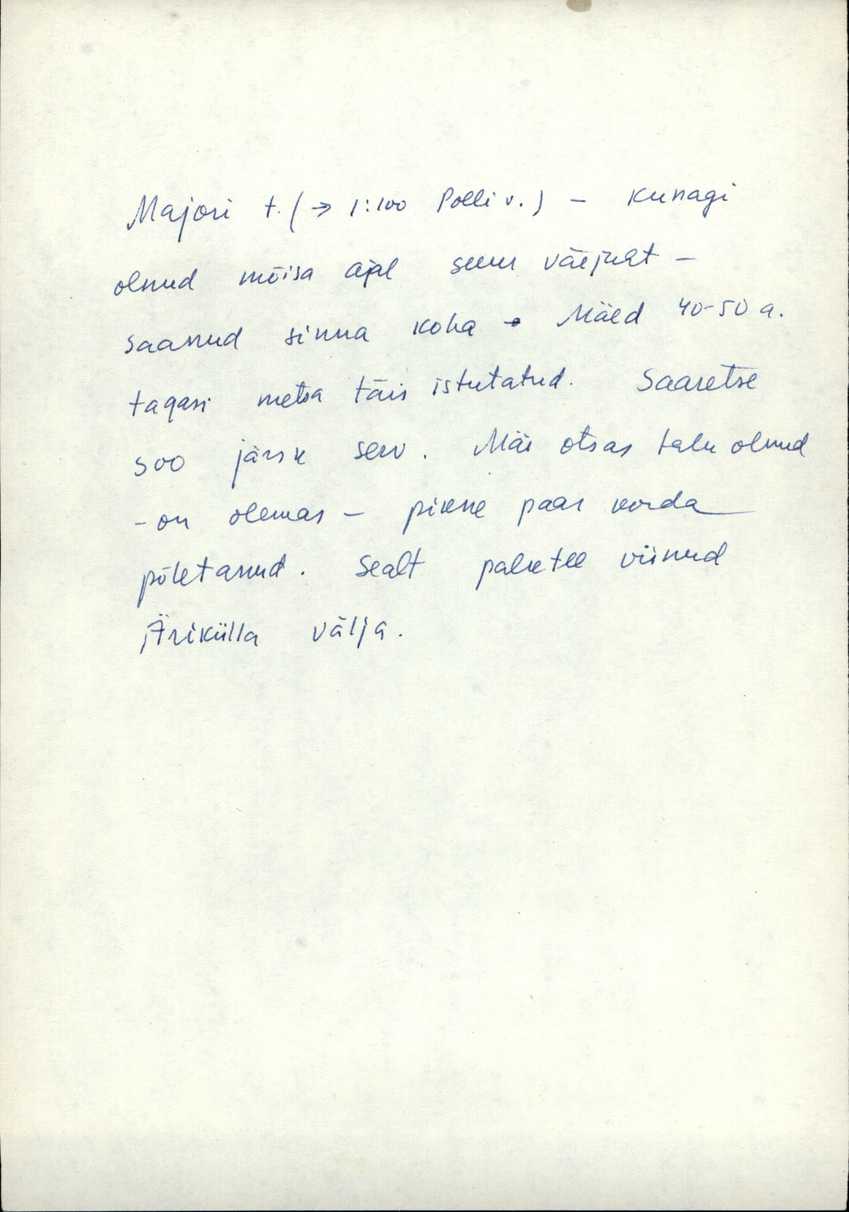 Majori t. (→ 1:100 Polli v.) – kunagi
olnud mõisa ajal suur väejuht –
saanud sinna koha - Mäed 40-50 a.
tagasi metsa täis istutatud. Saaretse
soo järsk serv. Mäe otsas talu olnud
– on olemas – pikne paar korda
põletanud. Sealt palktee viinud
Ärikülla välja.